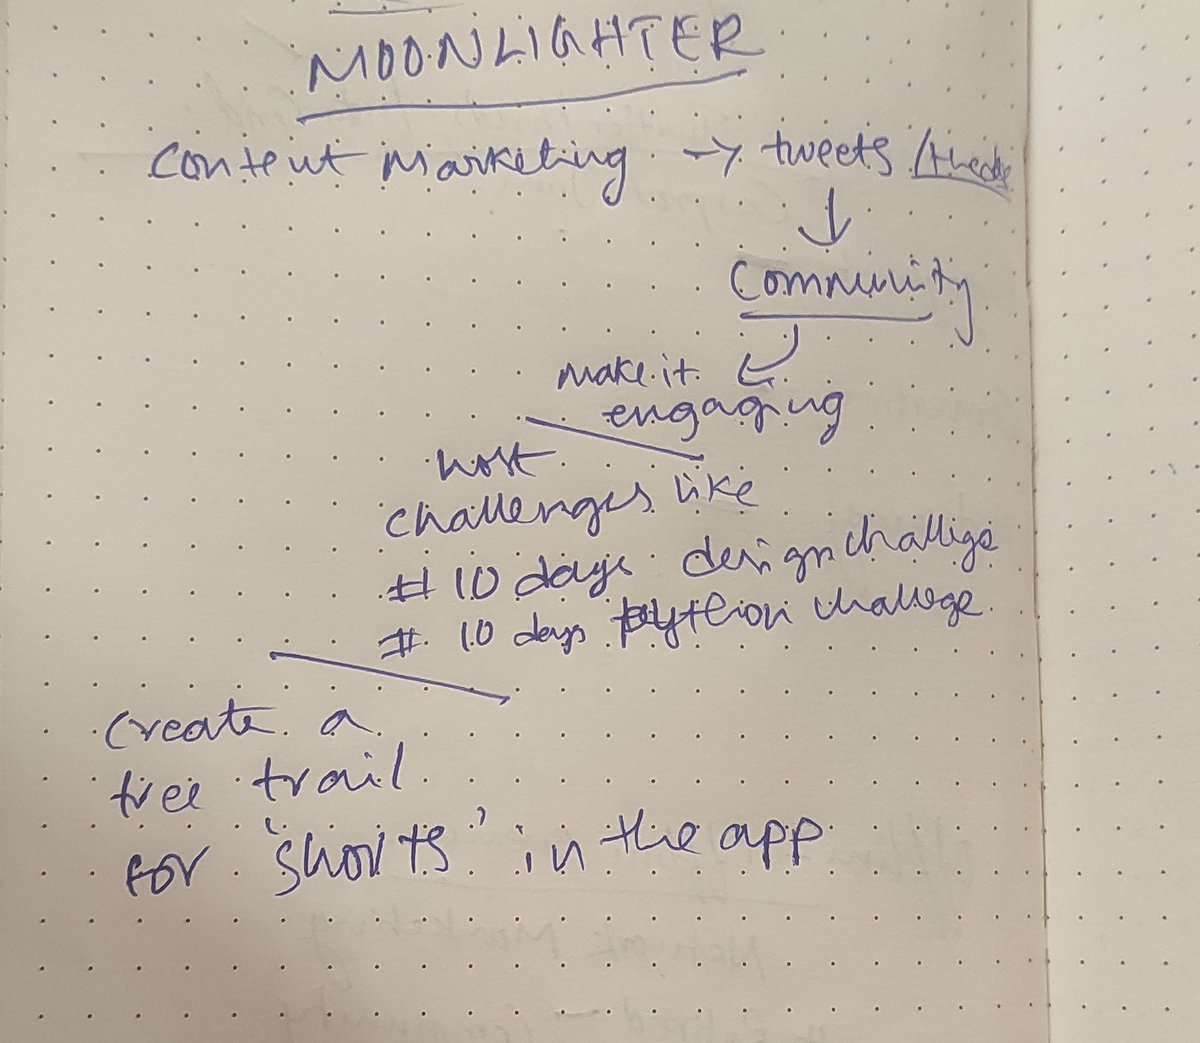 MOONLIGHTER
Content Marketing → tweets / threads
↓
Community
make it
engaging
host
challenges like
# 10 days design challenge
# 10 days python challenge
Create a
free trail
For 'shorts' in the app